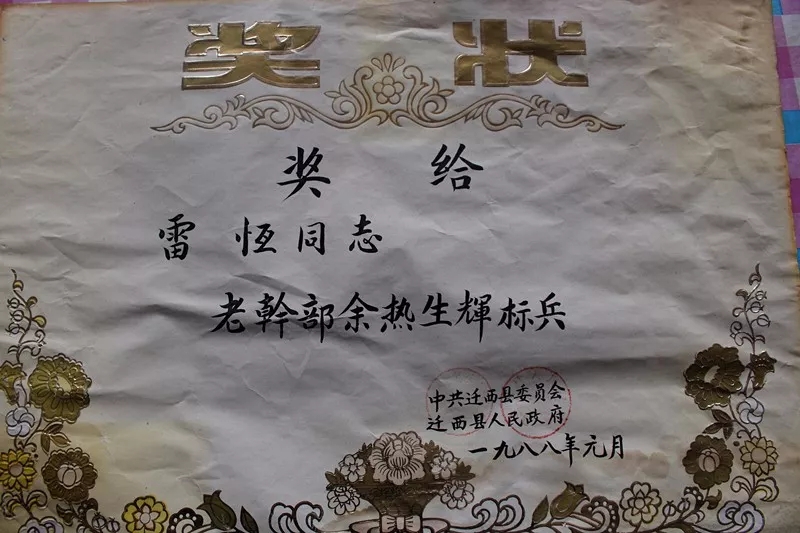 奖状
奖给
雷恆同志
老幹部余热生輝标兵
中共迁西县委员会
迁西县人民政府
一九八八年元月